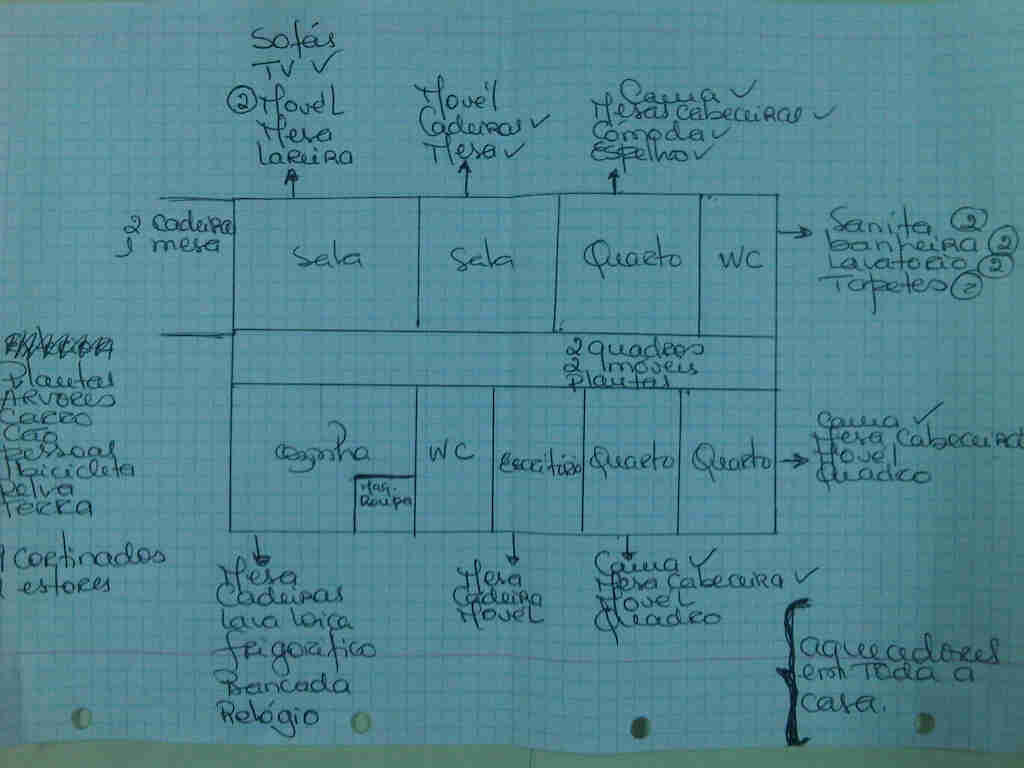 Sofás
TV ✓
② Movél
Mesa
Lareira
Movél
Cadeiras ✓
Mesa ✓
Cama ✓
Mesas Cabeceiras ✓
Comoda ✓
Espelho ✓
2 cadeira
1 mesa
Sala
Sala
Quarto
WC
Sanita ②
banheira ②
Lavatorio ②
Tapetes ②
2 quadros
2 moveis
Plantas
Plantas
Arvores
Carro
Cão
Pessoas
bicicleta
Relva
Terra
cortinados
estores
Cozinha
Maq.
Roupa
WC
Escritório
Quarto
Quarto
Cama ✓
Mesa Cabeceira
Movel
Quadro
Mesa
Cadeiras
Lava loiça
frigorafico
Bancada
Relógio
Mesa
Cadeira
Movel
Cama ✓
Mesa Cabeceira ✓
Movel
Quadro
aquecedores
em Toda a
casa.